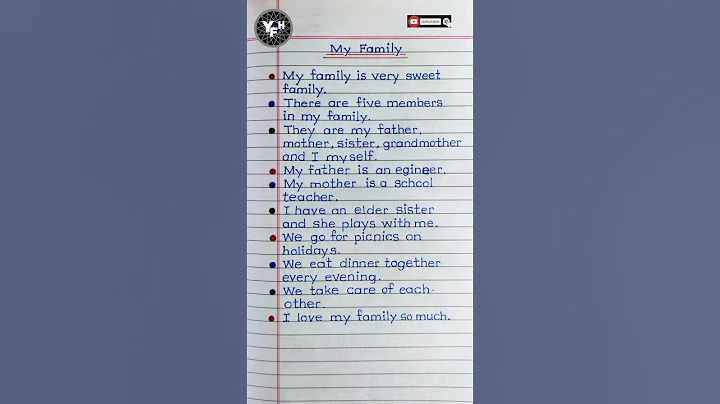 YFH
SUBSCRIBE
My Family
My family is very sweet
family.
There are five members
in my family.
They are my father,
mother, sister, grandmother
and I myself.
My father is an egineer.
My mother is a school
teacher.
I have an elder sister
and she plays with me.
We go for picnics on
holidays.
We eat dinner together
every evening.
We take care of each-
other.
I love my family so much.